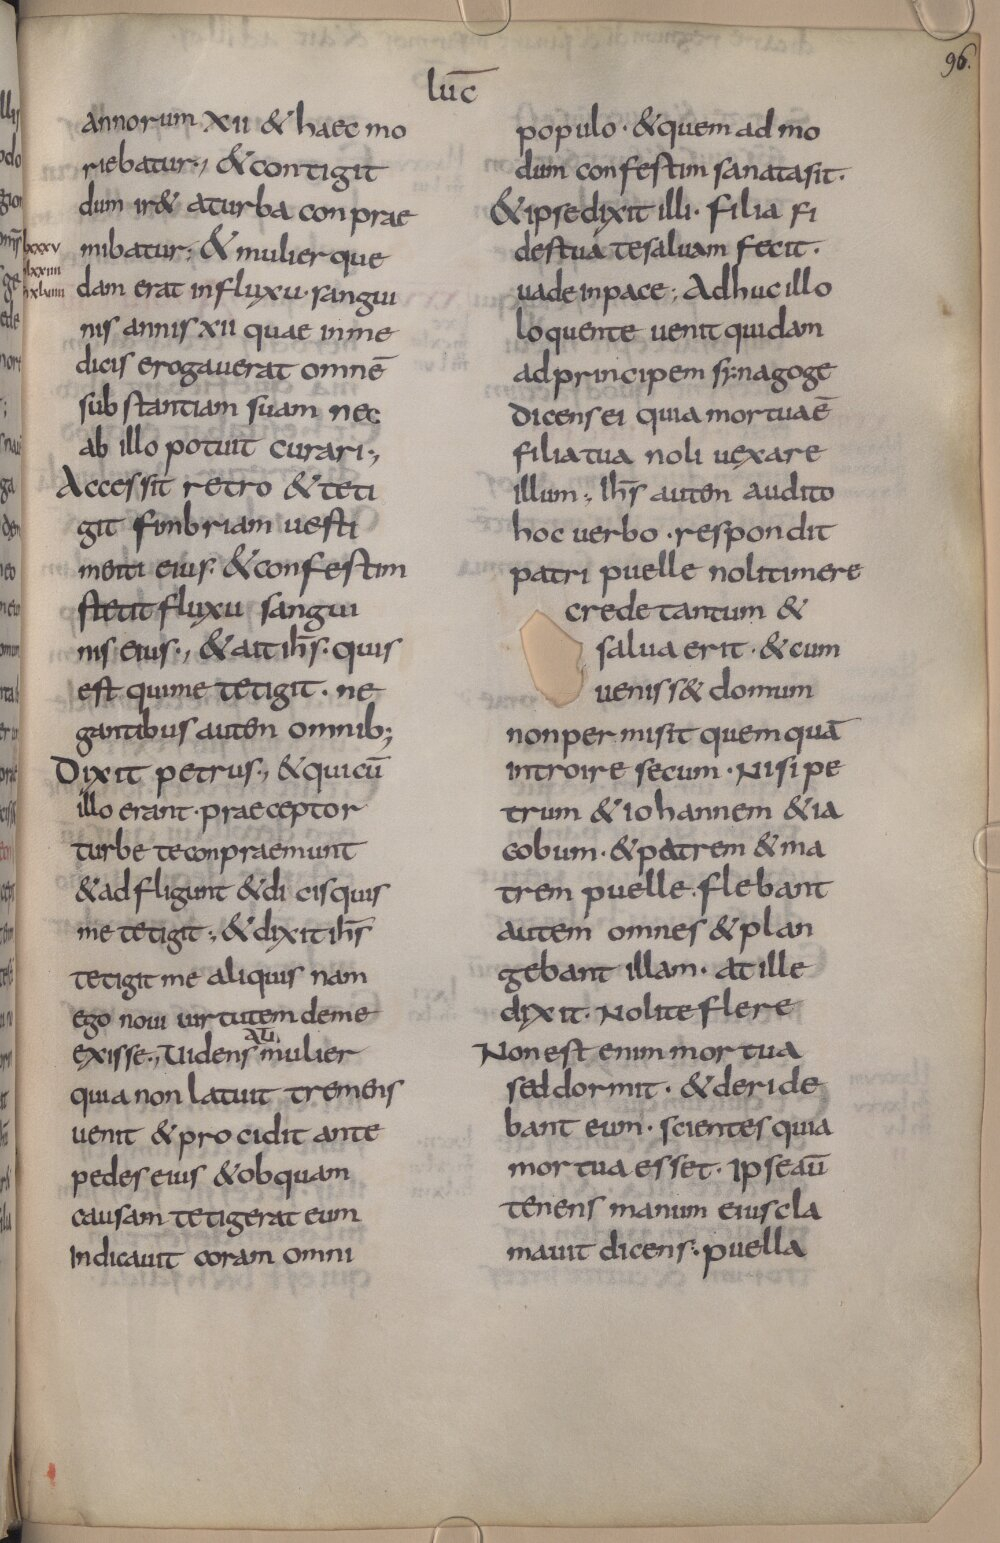 96.
luc̄
annorum xii & haec mo
riebatur·, & contigit
dum ir& aturba conprae
mibatur; & mulier que
dam erat influxu· sangui
nis annis xii quae inme
dicis erogauerat omnē
substantiam suam nec
ab illo potuit curari·,
Accessit retro & teti
git fimbriam uesti
menti eius: & confestim
stetit fluxu sangui
nis eius·, & ait ih̄s: quis
est quime tetigit· ne
gantibus autem omnib;
Dixit petrus·, & quicū
illo erant· praeceptor
turbe teconpraemunt
& adfligunt & di cis quis
me tetigit·, & dixit ih̄s
tetigit me aliquis nam
ego noui uirtutem deme
exisse·, Uidens au̅ mulier
quia non latuit tremens
uenit & procidit ante
pedes eius & ob quam
causam tetigerat eum
Indicauit coram omni
lxxxv
populo· & quem ad mo
dum confestim sanata sit·
& ipse dixit illi· filia fi
des tua te saluam fecit·
uade in pace; Adhuc illo
loquente uenit quidam
ad principem synagoge
dicens ei quia mortua ē
filia tua noli uexare
illum·, ih̄s autem audito
hoc uerbo· respondit
patri puelle noli timere
crede tantum &
salua erit· & cum
ueniss& domum
non permisit quem quā
introire secum· Nisi pe
trum & iohannem & ia
cobum· & patrem & ma
trem puelle· flebant
autem omnes & plan
gebant illam· at ille
dixit· Nolite flere
Non est enim mortua
sed dormit· & deride
bant eum· scientes quia
mortua esset· Ipse aū
tenens manum eius cla
mauit dicens: puella